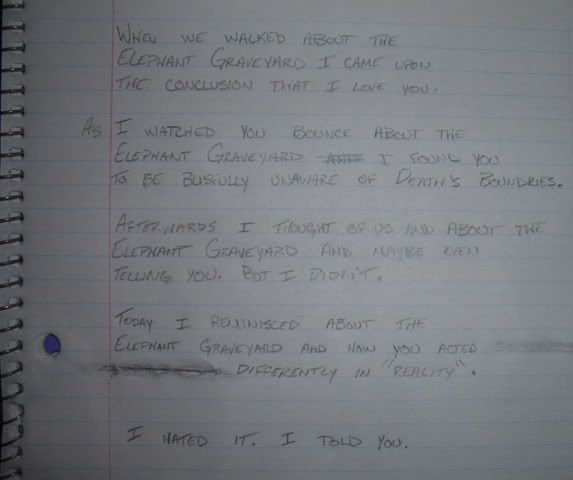 WHEN WE WALKED ABOUT THE
ELEPHANT GRAVEYARD I CAME UPON
THE CONCLUSION THAT I LOVE YOU.
AS I WATCHED YOU BOUNCE ABOUT THE
ELEPHANT GRAVEYARD I FOUND YOU
TO BE BLISSFULLY UNAWARE OF DEATH'S BOUNDRIES.
AFTERWARDS I THOUGHT OF US AND ABOUT THE
ELEPHANT GRAVEYARD AND MAYBE EVEN
TELLING YOU. BUT I DIDN'T.
TODAY I REMINISCED ABOUT THE
ELEPHANT GRAVEYARD AND HOW YOU ACTED
DIFFERENTLY IN "REALITY".
I HATED IT. I TOLD YOU.